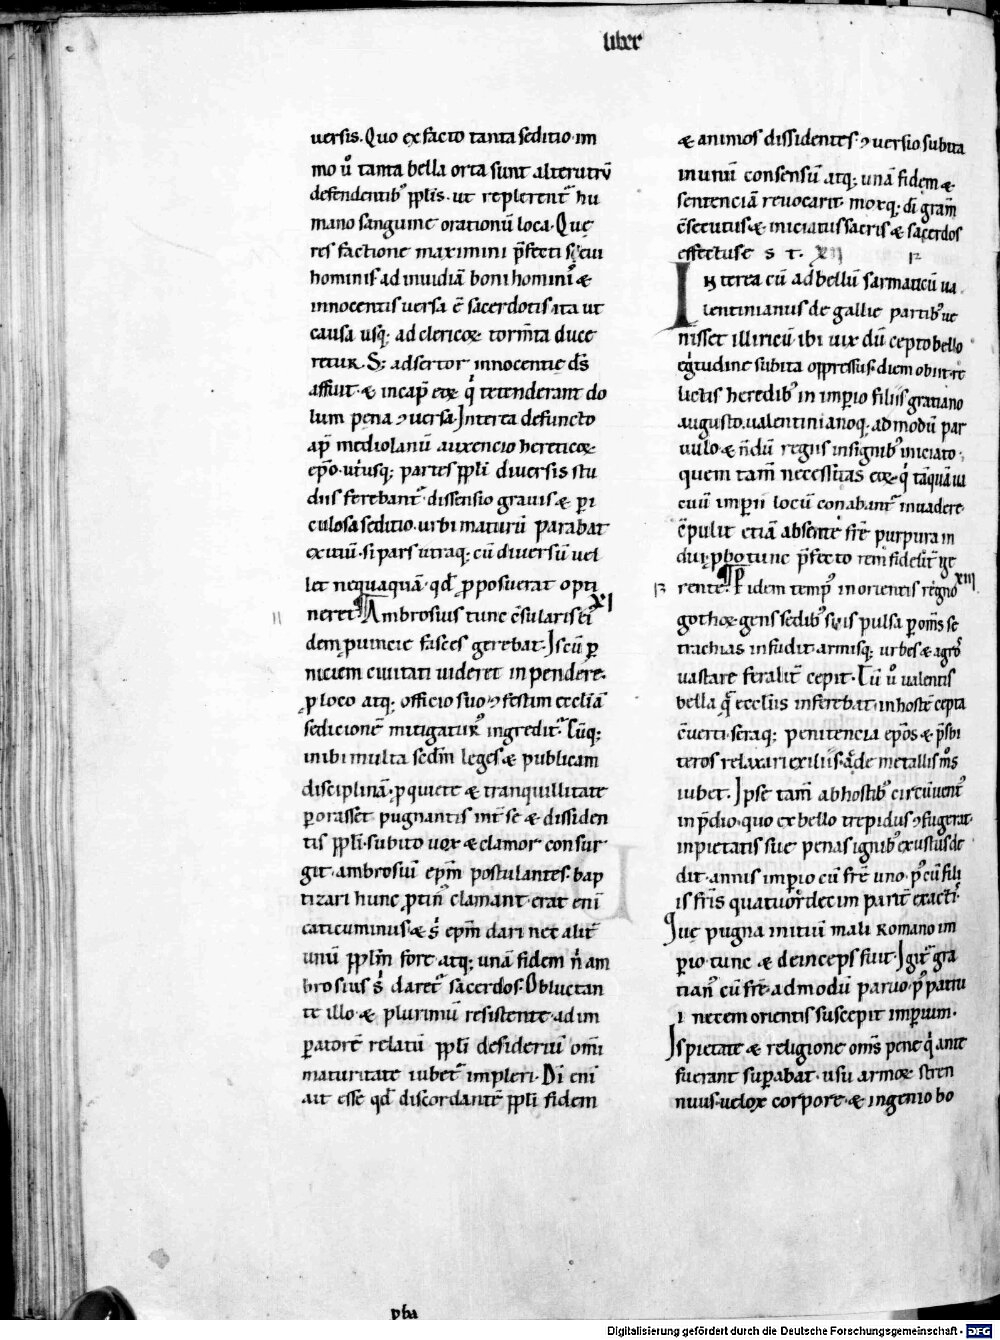 liber
uersis. Quo ex facto tanta seditio im
mo ů tanta bella orta sunt alterutrū
defendentib; pplis. ut replerent᷑ hu
mano sanguine orationū loca. Que
res factione maximini p̄fecti sęui
hominis ad inuidiā boni hominis &
innocentis uersa ē sacerdotis ita ut
causa usq; ad clericoꝝ torm̄ta duce
retur. S; adsertor innocentie d̄s
affuit. & in cap̄ eoꝝ q̇ tetenderant do
lum pena ꝯuersa. Interea defuncto
ap̄ mediolanū auxencio hereticoꝝ
ep̄o. utrusq; partes ppli diuersis stu
diis ferebant᷑ dissensio grauis & pi
culosa seditio. urbi maturū parabat
exitiū. si pars utraq; cū diuersū uel
let nequaquā qđ pposuerat opti
neret. XI
11 Ambrosius tunc c̄sularis ei᷑
dem puincie fasces gerebat. Is cū p̲
niciem ciuitati uideret inpendere.
p loco atq; officio suo ꝯfestim eccl̄iā
sedicionē mitigaturꝰ ingredit᷑. Cūq;
inibi multa sedm̄ leges & publicam
disciplinā. p quiete & tranquillitate
perorasset pugnantis int̄ se & dissiden
tis ppli. subito uox & clamor consur
git. ambrosiū ep̄m postulantes. bap
tizari hunc ptin᷑ clamant. erat eni᷑
caticuminus. & s̓ ep̄m dari nec alit̄
unū pplm fore atq; unā fidem n̓ am
brosius s̓ daret᷑ sacerdos. Obluctan
te illo & plurimū resistente. ad im
patorē relatū ppli desideriū om̄i
maturitate iubet᷑ impleri. Di eni᷑
ait esse qđ discordantē ppli fidem
& animos dissidentes. ꝯuersio subita
in unū consensū atq; unā fidem &
sentenciā reuocarit. moxq; di gram̄
c̄secutus. & iniciatus sacris & sacerdos
effectus est. XII 12
Interea cū ad bellū sarmaticū ua
lentinianus de gallie partib; ue
nisset illiricū. ibi uix dū cepto bello
egritudine subita oppressus. diem obiit. re
lictis heredib; in impio filiis gratiano
augusto. ualentinianoq; admodū par
uulo. & n̄dū regiis insignib; iniciato.
quem tam̄ necessitas eoꝝ q̇ tāquā ua
cuū imperii locū conabant᷑ inuadere.
c̄pulit etiā absente fr̄e purpura in
dui. pbo tunc p̄fecto rem fidelit̄ ge
rente. XIII
13 Pidem temp̓ in orientis regno
gothoꝝ gens sedib; suis pulsa p om̄s se
trachias infudit. armisq; urbes & agro᷑
uastare feralit̄ cepit. Tū ů ualentis
bella q̄ eccl̄iis inferebat. in hostē cepta
c̄uerti. seraq; penitencia ep̄os & p̄sbi
teros relaxari exiliis. ac̄ de metallis m̄s
iubet. Ipse tam̄ ab hostib; circūuent᷑
in p̄dio quo ex bello trepidus ꝯfugerat
inpietatis sue penas ignib; exustus de
dit. annis impio cū fr̄e uno. p̓ cū fili
is fr̄is quatuordecim parit̄ exacti᷑.
Que pugna initiū mali romano im
pio tunc & deinceps fuit. Igit᷑ gra
tian᷑ cū fr̄e. admodū paruo. p̓ patru
i necem orientis suscepit imperium.
Is pietate & religione om̄s pene q̇ ante
fuerant supabat. usu armoꝝ stren
nuus. uelox corpore. & ingenio bo
pba
Digitalisierung gefördert durch die Deutsche Forschungsgemeinschaft - DFG